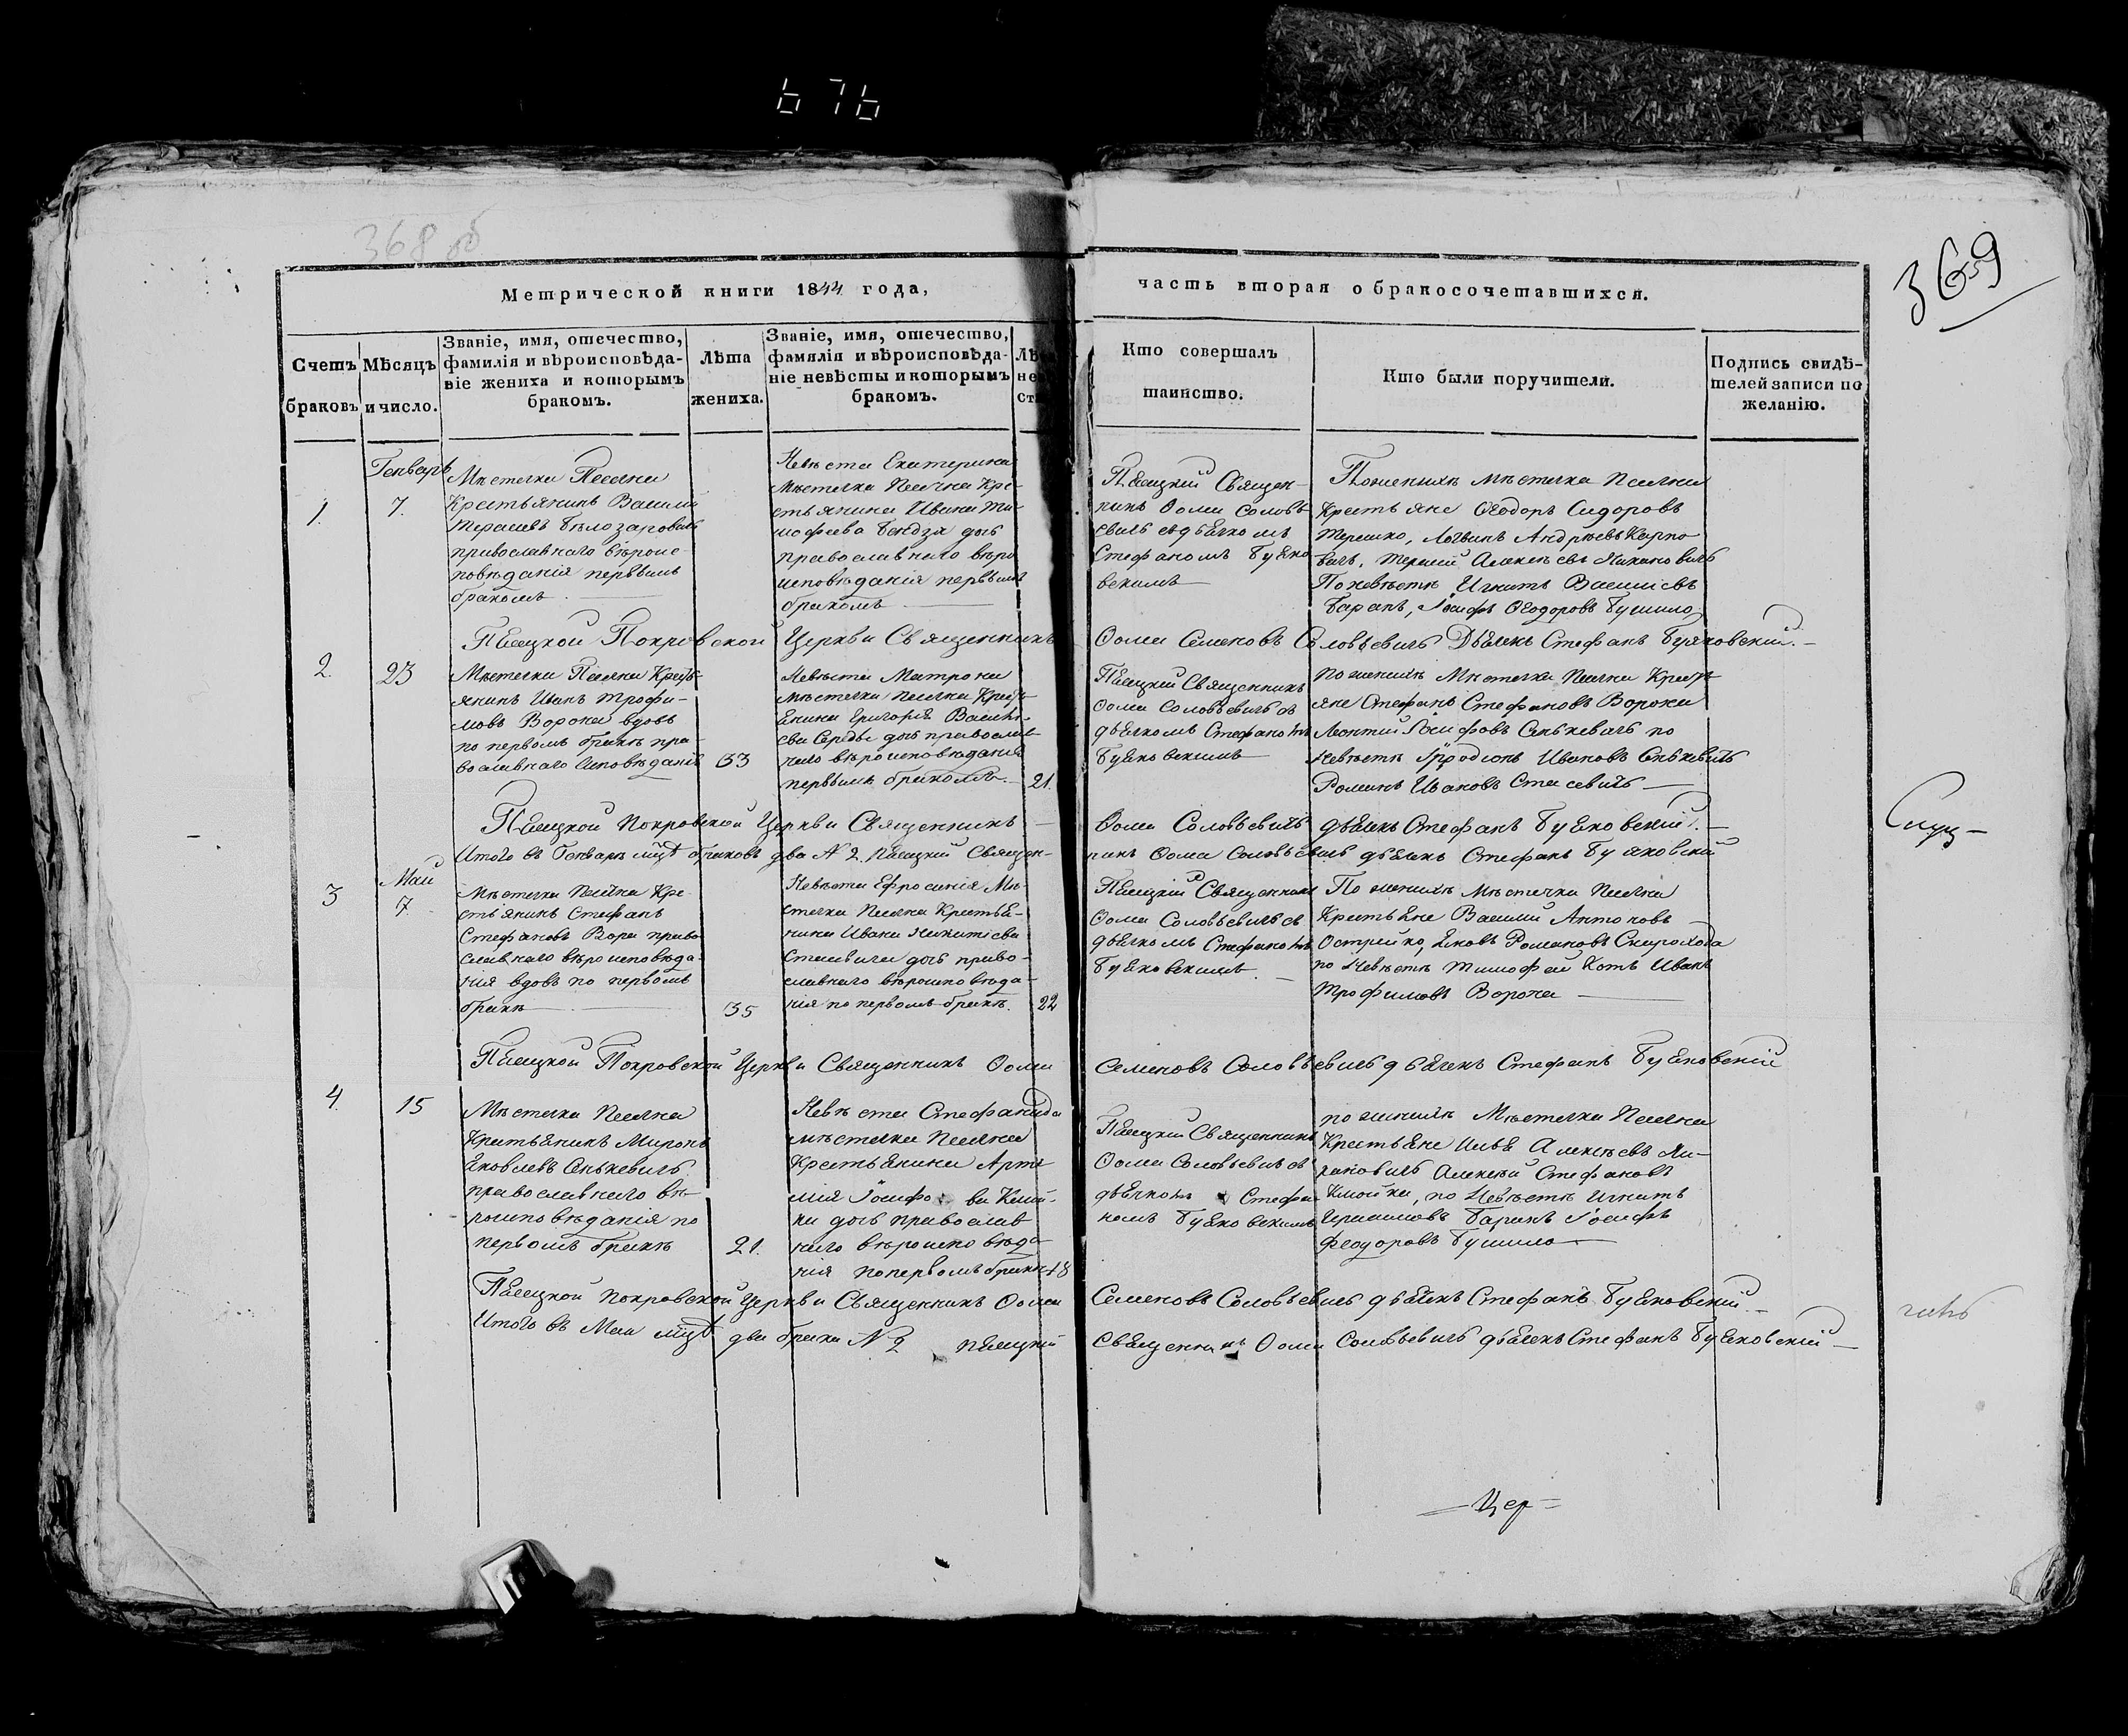 676
368 об
369
Метрической книги 1844 года,
часть вторая о бракосочетавшихся.
Счетъ браковъ
Мѣсяцъ и число.
Званіе, имя, отечество,
фамилія и вѣроисповѣда-
ніе жениха и которымъ
бракомъ.
Лѣта
жениха.
Званіе, имя, отечество,
фамилія и вѣроисповѣда-
ніе невѣсты и которымъ
бракомъ.
Кто совершалъ
таинство.
Кто были поручители.
Подпись свидѣ-
телей записи по
желанію.
Генварь
1.
7.
Мѣстечка Песчки
Крестьянинъ Василій
Тарасіевъ Бѣлозаровичъ
православнаго вѣроис-
повѣданія первымъ
бракомъ
Невѣста Екатерина
Мѣстечка Песчки Кре-
стьянина Ивана Ти-
мофеева дочь
православнаго вѣро
исповѣданія первымъ
бракомъ
Пѣсецкій Священ-
никъ Ѳома Соловь-
евичъ съ дьячкомъ
Стефаномъ Буяко
вскимъ
По женихѣ мѣстечка Песчки
Крестьяне Ѳеодоръ Сидоровъ
Терешко, Логвинъ Андреевъ Карпо
вичъ, Терентій Алексѣевъ Лихановичъ
По невѣстѣ Игнатъ Васильевъ
Баранъ, Іосифъ Ѳеодоровъ Бушило
Пѣсецкой Покровской Церкви Священникъ
Ѳома Семеновъ Соловьевичъ Дьячекъ Стефанъ Буяковскій.
2.
23
Мѣстечка Песчки Кресть-
янинъ Иванъ Трофи-
мовъ Ворона вдовъ
по первомъ бракѣ пра-
вославнаго исповѣданія
33
Невѣста Матрона
мѣстечка Песчки Кресть-
янина Григорія Василь-
ева Середы дочь православ-
наго вѣроисповѣданія
первымъ бракомъ.
21.
Пѣсецкій Священникъ
Ѳома Соловьевичъ съ
дьячкомъ Стефаномъ
Буяковскимъ
По женихѣ Мѣстечка Песчки Кресть-
яне Стефанъ Стефановъ Ворона
Леонтій Іосифовъ Сенкевичъ по
Невѣстѣ Иродіонъ Ивановъ Сенкевичъ
Романъ Ивановъ Стасевичъ
Пѣсецкой Покровской Церкви Священникъ
Ѳома Соловьевичъ дьячекъ Стефанъ Буяковскій.
Слуц-
Итого въ Генварѣ мцѣ браковъ два N 2. Пѣсецкій Священ-
никъ Ѳома Соловьевичъ дьячекъ Стефанъ Буяковскій
Май
3
7.
Мѣстечка Песчки Кре-
стьянинъ Стефанъ
Стефановъ Вора право-
славнаго вѣроисповѣда-
нія вдовъ по первомъ
бракѣ
35
Невѣста Ефросинія Мѣ-
стечка Песчки Крестья-
нина Ивана Никитіева
Стасевича дочь право-
славнаго вѣроисповѣда-
нія по первомъ бракѣ.
22
Пѣсецкій Священникъ
Ѳома Соловьевичъ съ
дьячкомъ Стефаномъ
Буяковскимъ
По женихѣ Мѣстечка Песчки
Крестьяне Василій Антоновъ
Острейко, Яковъ Романовъ Скороходъ
по Невѣстѣ Тимофей Котъ Иванъ
Трофимовъ Ворона
Пѣсецкой Покровской Церкви Священникъ Ѳома
Семеновъ Соловьевичъ дьячекъ Стефанъ Буяковскій
4.
15
Мѣстечка Песчки
Крестьянинъ Миронъ
Яковлевъ Сенкевичъ
православнаго вѣ-
роисповѣданія по
первомъ бракѣ
21.
Невѣста Стефанида
мѣстечка Песчки
Крестьянина Арте
мія Іосифова Клюй-
ки дочь православ
наго вѣроисповѣда-
нія по первомъ бракѣ
18
Пѣсецкій Священникъ
Ѳома Соловьевичъ съ
дьячкомъ Стефа
номъ Буяковскимъ
по женихѣ Мѣстечка Песчки
Крестьяне Илья Алексѣевъ Ли-
хановичъ Алексѣй Стефановъ
Клюйка, по Невѣстѣ Игнатъ
Баранъ Іосифъ
Феодоровъ Бушило
Пѣсецкой Покровской Церкви Священникъ Ѳома
Семеновъ Соловьевичъ дьячекъ Стефанъ Буяковскій.
Итого въ Маи мцѣ два брака N 2 пѣсецкій
Священникъ Ѳома Соловьевичъ дьячекъ Стефанъ Буяковскій
-Цер-